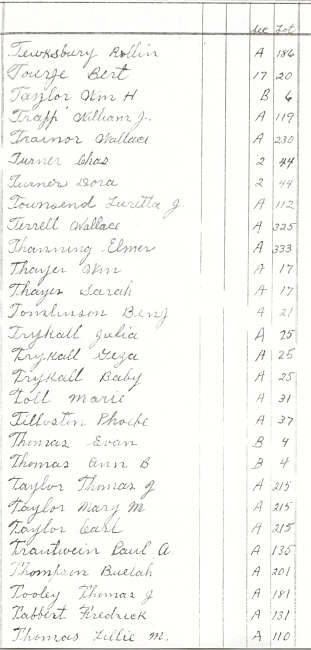 Sec Lot
Tewksbury Rollin A 186
Tourje Bert 17 20
Taylor Wm H B 6
Trapp William J. A 119
Trainor Wallace A 230
Turner Chas 2 44
Turner Dora 2 44
Townsend Luretta J A 112
Terrell Wallace A 325
Thanning Elmer A 333
Thayer Wm A 17
Thayer Sarah A 17
Tomlinson Benj A 21
Trykall Julia A 25
Trykall Geza A 25
Trykall Baby A 25
Toll Marie A 31
Tillotson Phoebe A 37
Thomas Evan B 4
Thomas Ann B B 4
Taylor Thomas J A 215
Taylor Mary M A 215
Taylor Carl A 215
Trautwein Paul A. A 135
Thompson Buelah A 201
Tooley Thomas J A 181
Tabbert Fredrick A 131
Thomas Lillie M. A 110